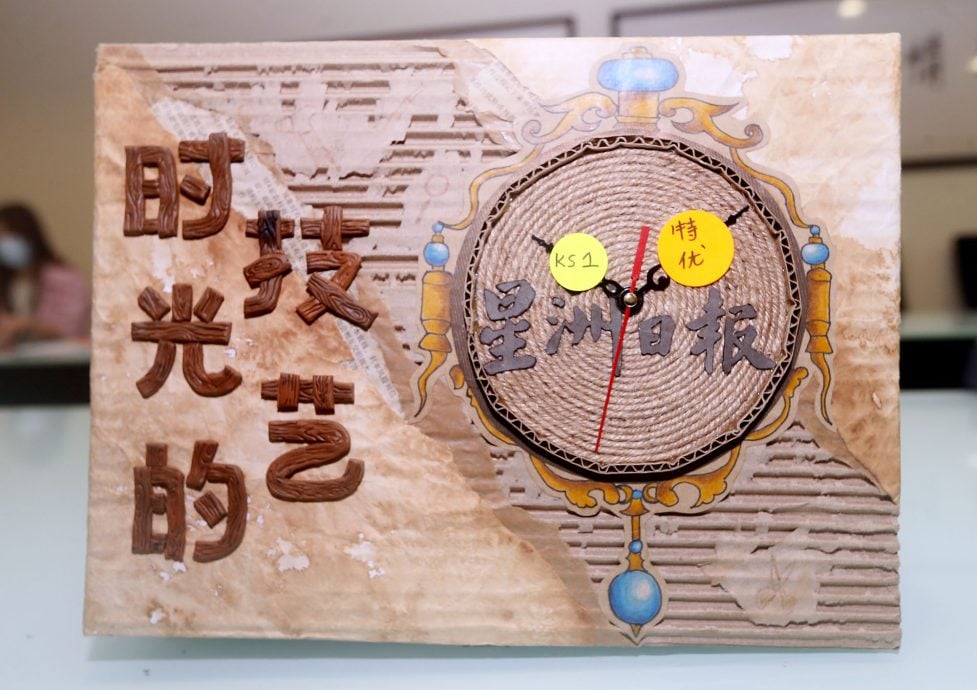 时光的
技艺
KS1
特优
星洲日报